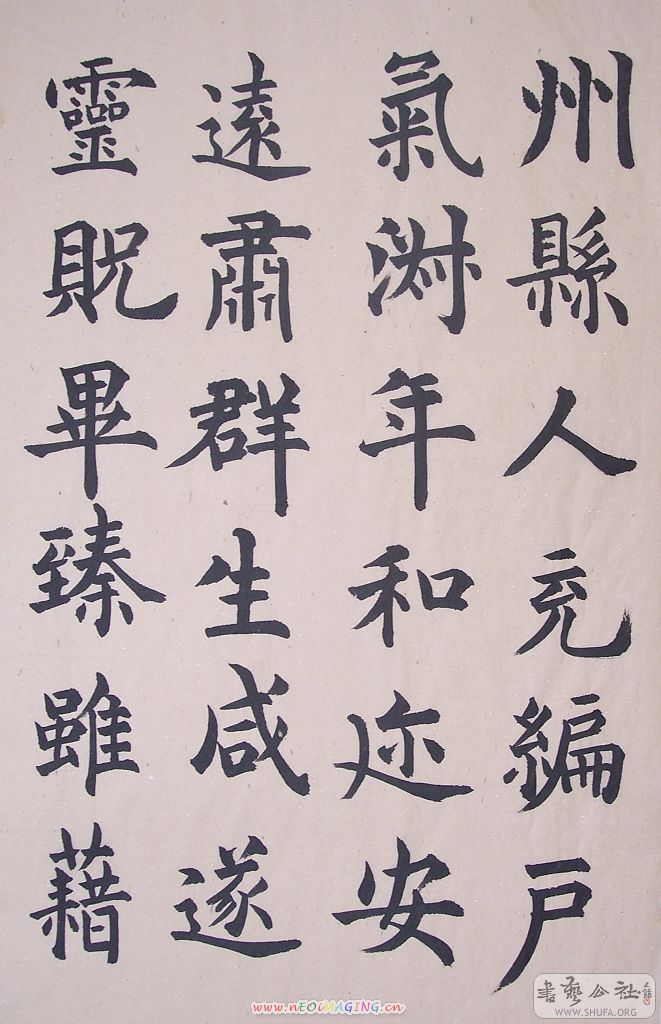 州縣人充編戶
氣淑年和迩安
遠肅群生咸遂
靈貺畢臻雖藉
書藝公社
WWW.SHUFA.ORG
www.nEOiMAGING.cn